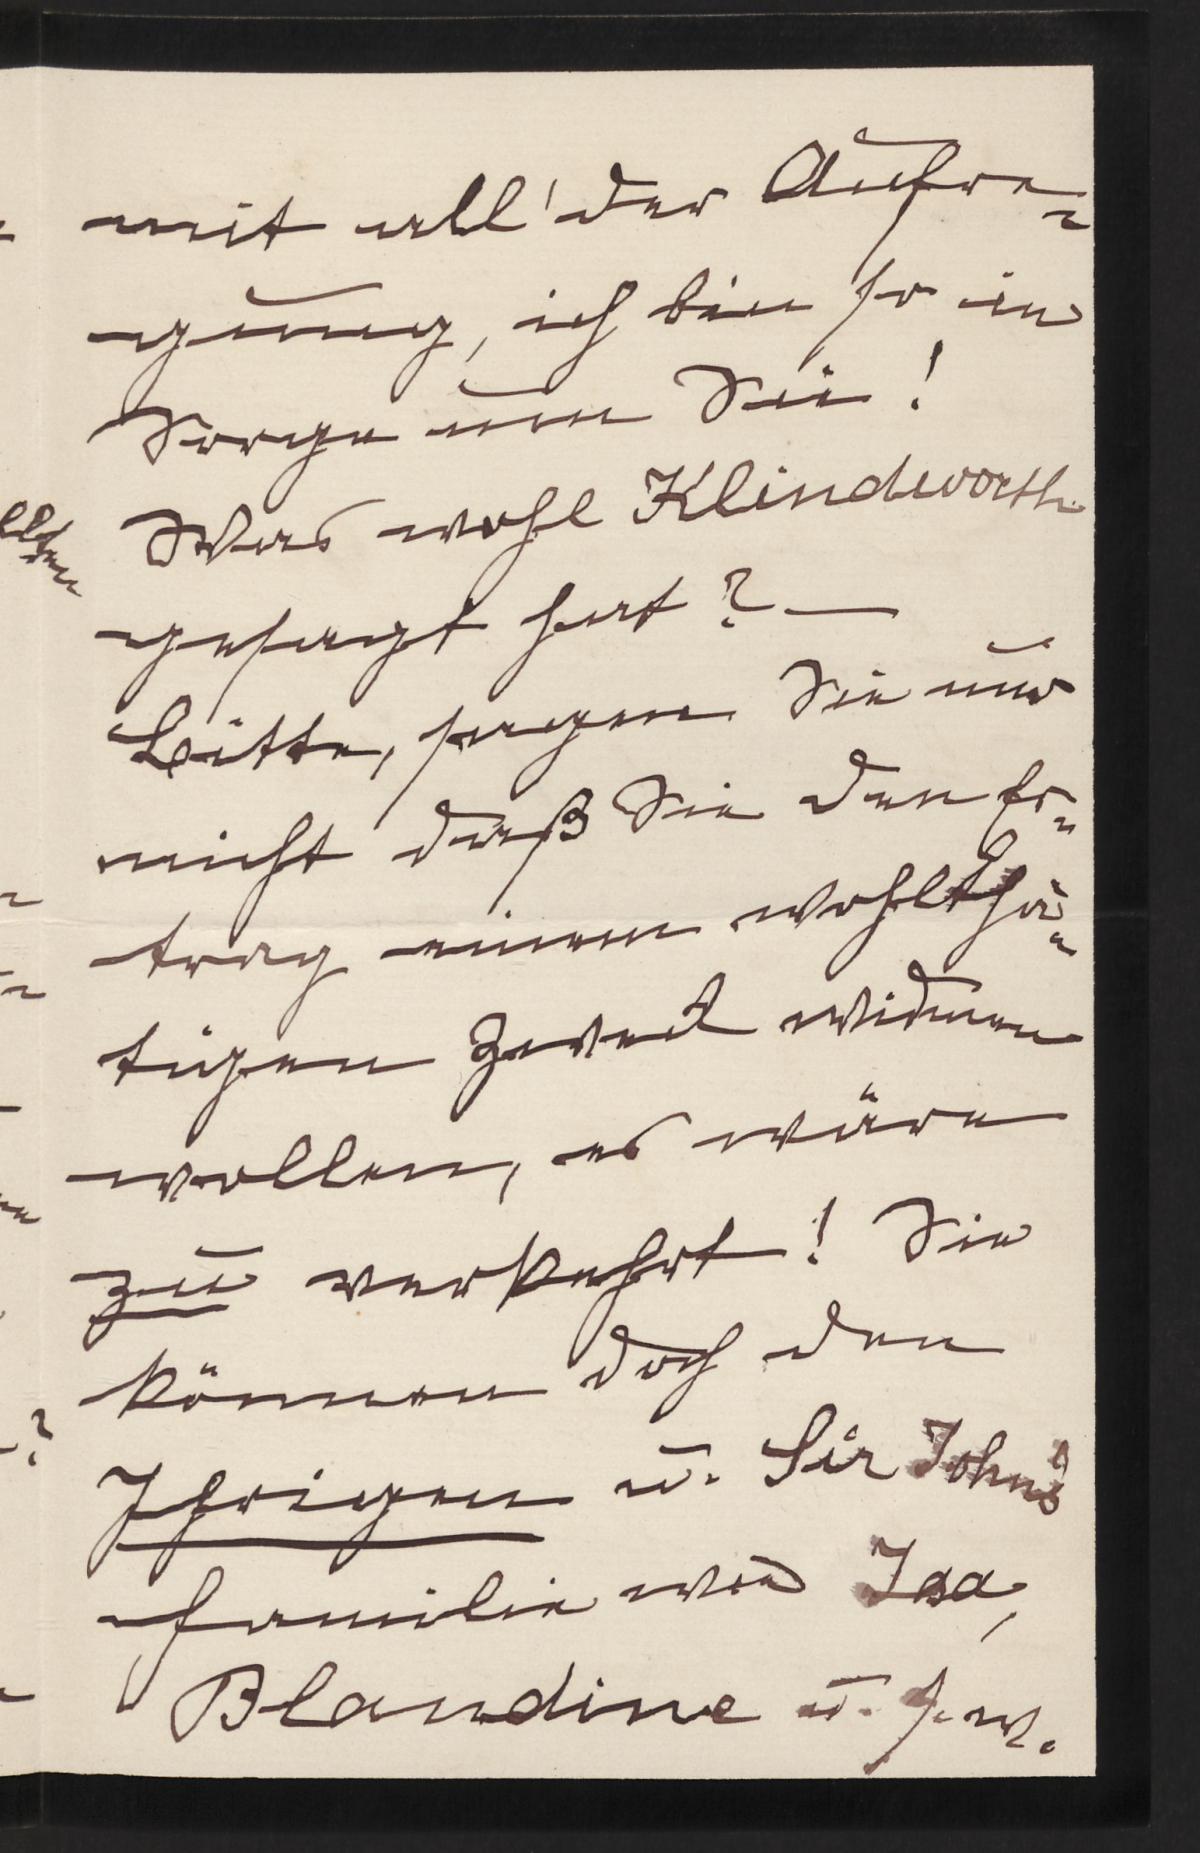 mit all' der Aufre-
gung, ich bin so in
Sorge um Sie!
Was wohl Klindworth
gesagt hat? —
Bitte, sagen Sie nur
nicht daß Sie den Er-
trag einem wohlthä-
tigen Zweck widmen
wollen, es wäre
zu verkehrt! Sie
können doch den
Ihrigen u. Sir John's
Familie wie Isa,
Blandine u. s. w.